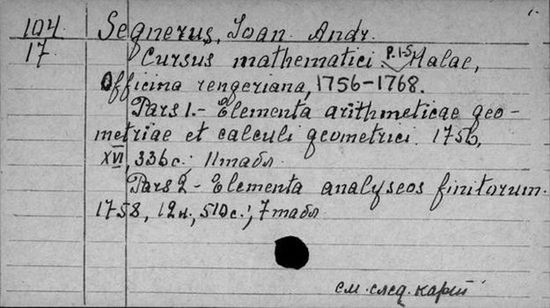 104 Segnerus, Ioan. Andr.
17 Cursus mathematici P. 1-5 Halae,
Officina rengeriana, 1756-1768.
Pars 1.- Elementa arithmeticae geo-
metriae et calculi geometrici. 1756,
XVI, 336 с. 11 табл.
Pars 2 - Elementa analyseos finitorum.
1758, 12 н., 510 с., 7 табл
см. след. карт